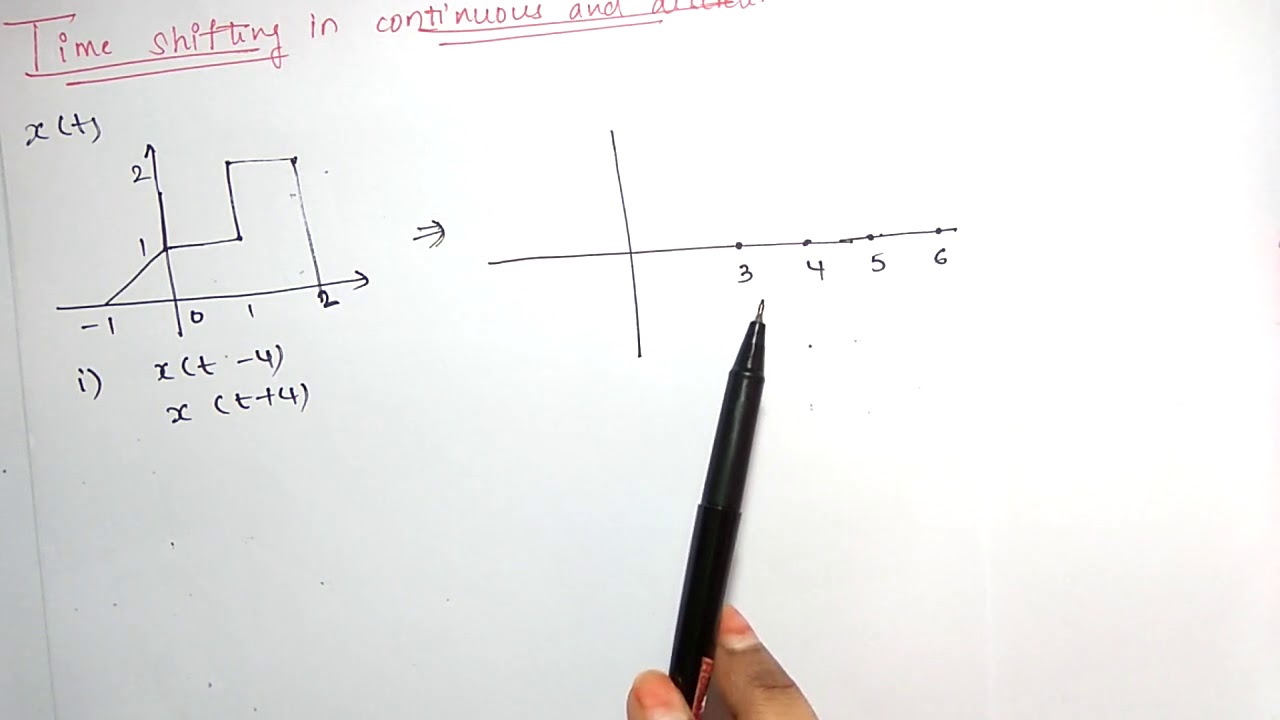 Time shifting in continuous and
x(t)
2
1
-1 0 1 2
⇒
3 4 5 6
i) x(t-4)
x (t+4)